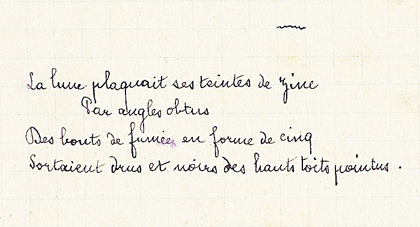 La lune plaquait ses teintes de zinc
Par angles obtus
Des bouts de fumée en forme de cinq
Sortaient drus et noirs des hauts toits pointus.